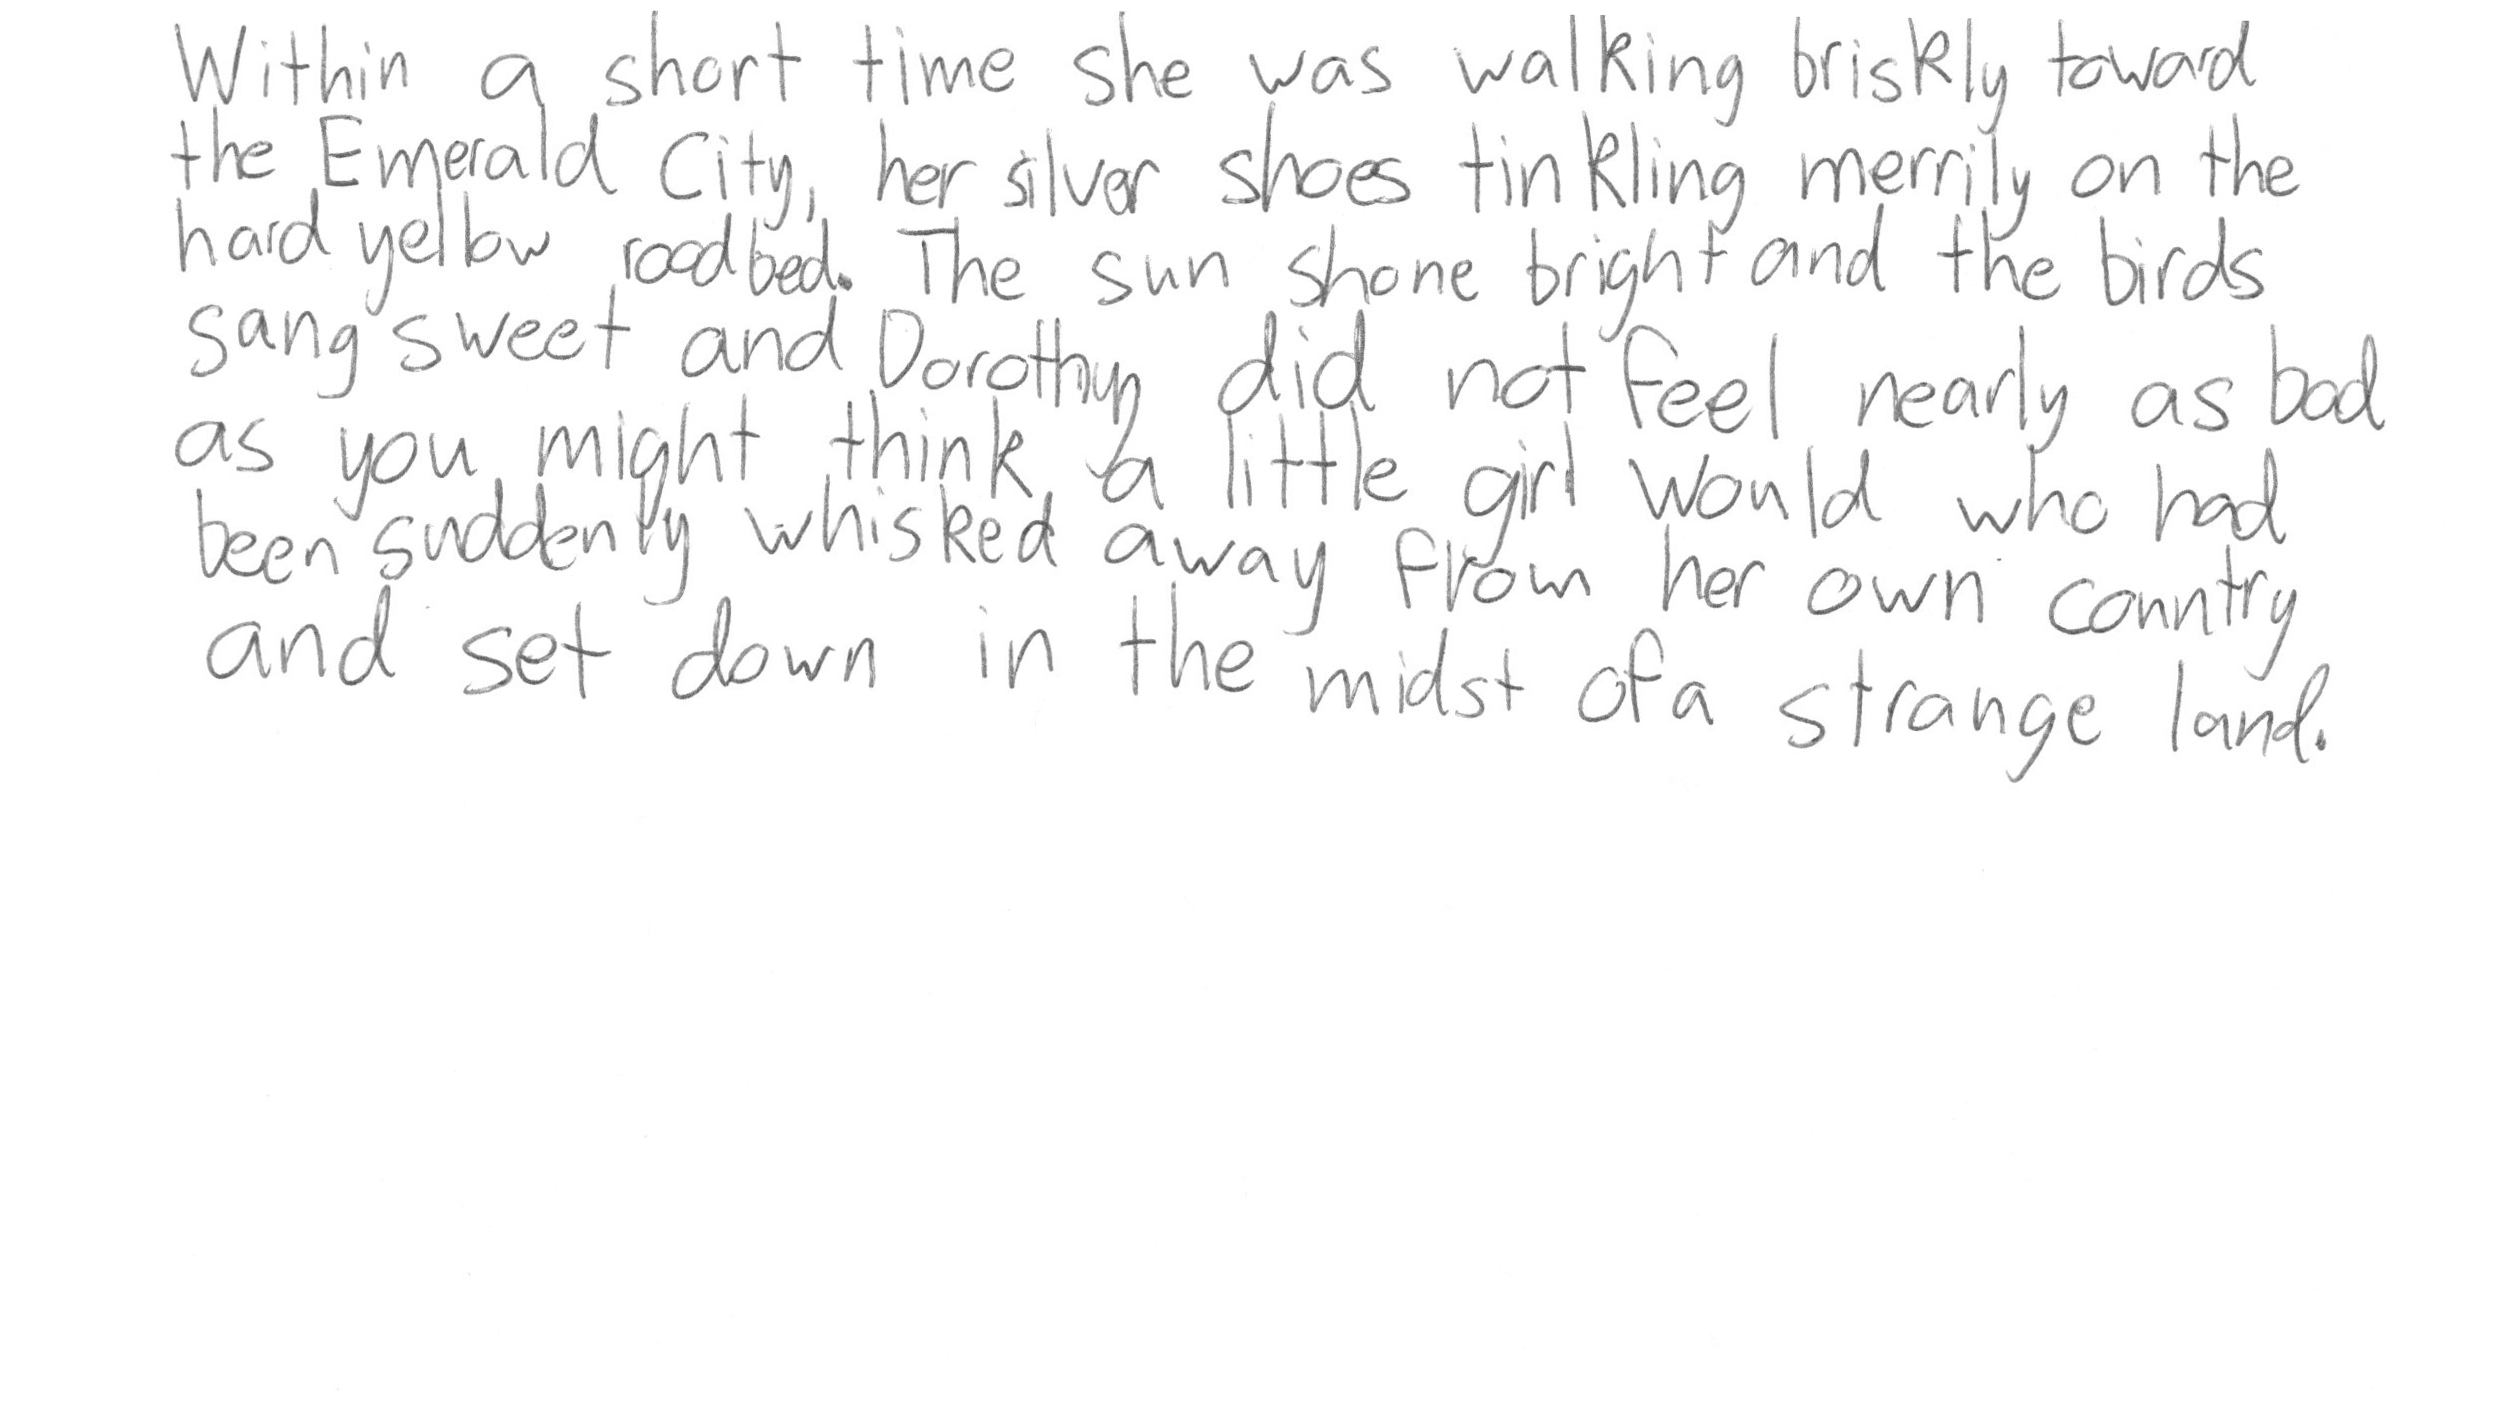 Within a short time she was walking briskly toward
the Emerald City, her silver shoes tinkling merrily on the
hard yellow roadbed. The sun shone bright and the birds
sang sweet and Dorothy did not feel nearly as bad
as you might think a little girl would who had
been suddenly whisked away from her own country
and set down in the midst of a strange land.